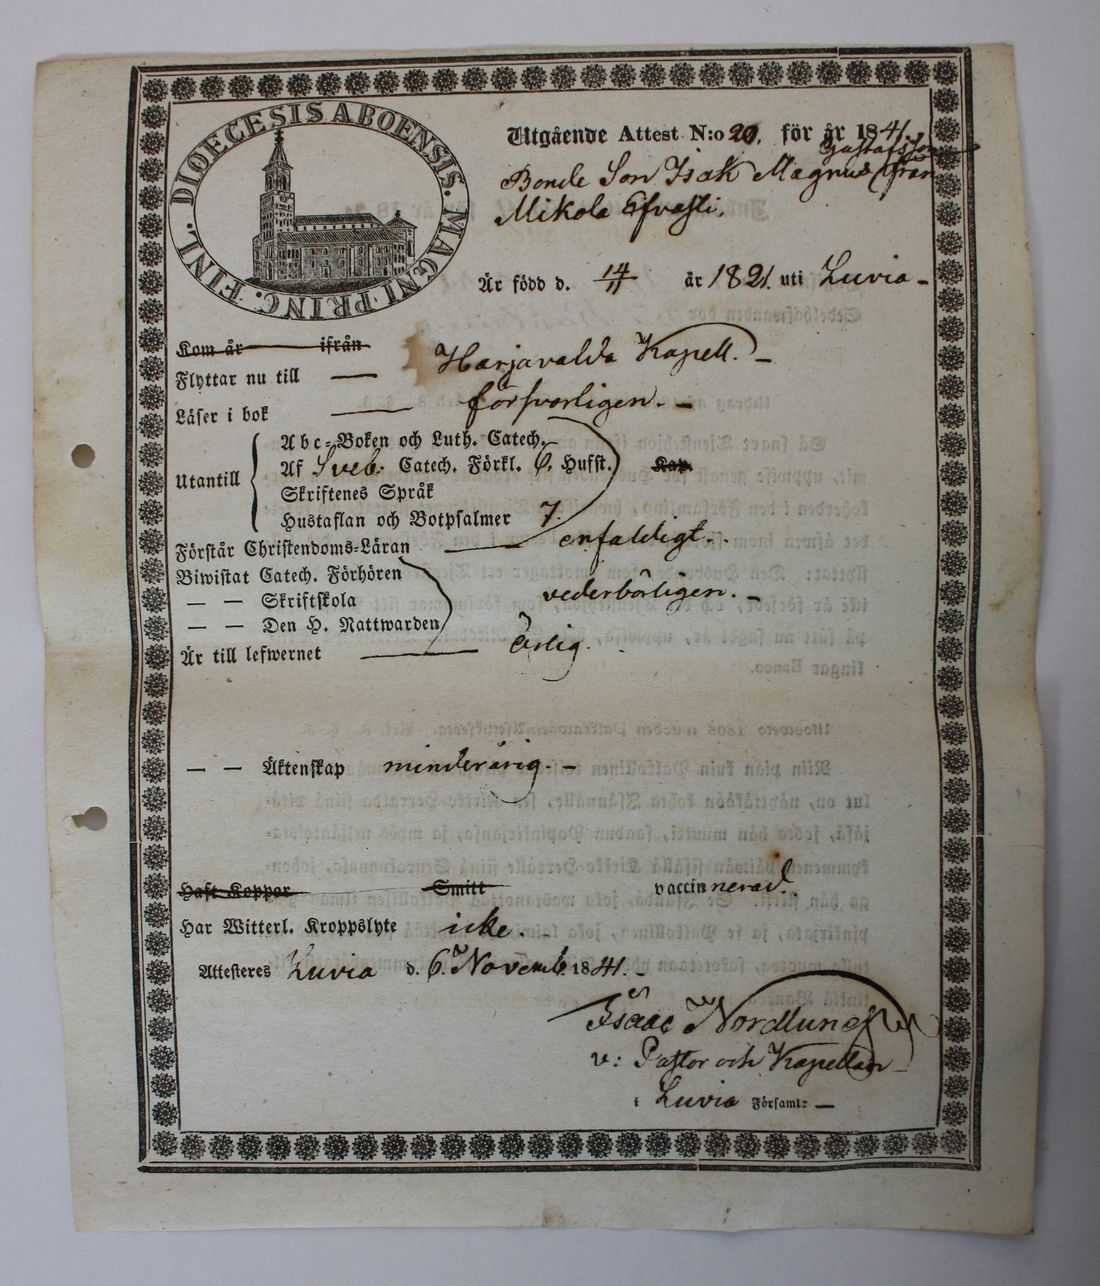 DIOECESIS ABOENSIS. MAGNI PRINC. FINL.
Utgående Attest N:o 20. för år 1841.
Gustafsson
Bonde Son Isak Magnus från
Mikola
Är född d. 14/11 år 1821. uti Luvia
Kom år ifrån
Flyttar nu till Harjavalda Kapell.
Läser i bok försvarligen.
Abc-Boken och Luth. Catech.
Utantill
Af Sveb. Catech. Förkl. 6. Hufst. Kap.
Skriftenes Språk
Hustaflan och Botpsalmer 7.
Förstår Christendoms-Läran enfaldigt.
Biwistat Catech. Förhören
— — Skriftskola vederbörligen.
— — Den H. Nattwarden
Är till lefwernet ärlig.
— — Äktenskap minderårig.
Haft Koppor Smitt vaccinnerad.
Har Witterl. Kroppslyte icke.
Attesteres Luvia d. 6. Novemb. 1841.
Isaac Nordlund
v: Pastor och Kapellan
i Luvia Församl: